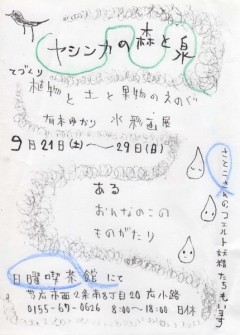 ヤシンカの森と泉
てづくり
植物と土と果物のえのぐ
有本ゆかり 水彩画展
9月21日(土)〜29日(日)
ある
おんなのこの
ものがたり
さとこさんのフェルト妖精たちもいます
日曜喫茶館にて
帯広市西2条南8丁目20 広小路
0155-67-0626 8:00〜18:00 日休